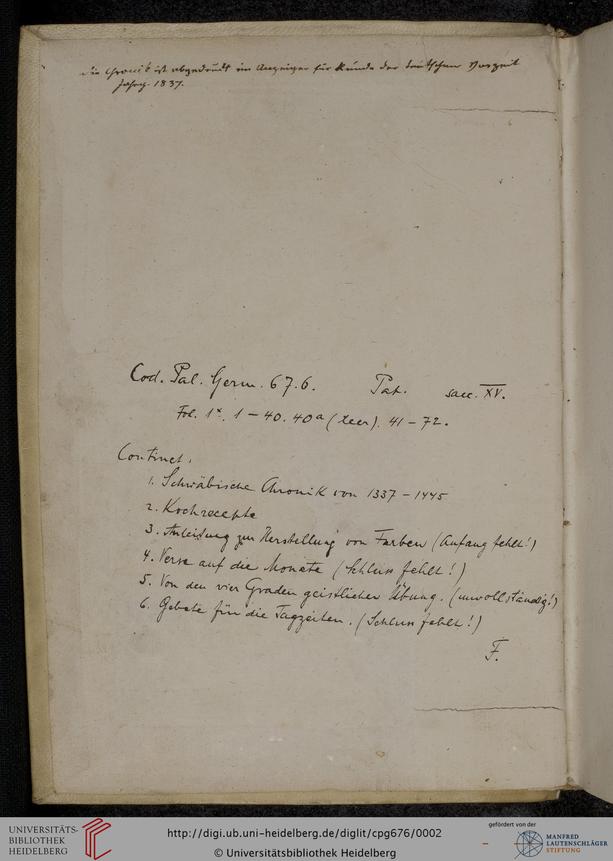 Die Chronik ist abgedruckt im Anzeiger für Kunde der deutschen Vorzeit
Jahrg. 1837.
Cod. Pal. Germ. 676. Pat. saec. XV.
Fol. 1*. 1 – 40. 40a (leer). 41 – 72.
Continet.
1. Schwäbische Chronik von 1337 – 1445
2. Kochrecepte
3. Anleitung zur Herstellung von Farben (Anfang fehlt!)
4. Verse auf die Monate (Schluss fehlt!)
5. Von den vier Graden geistlicher Übung. (unvollständig!)
6. Gebete für die Tagzeiten. (Schluss fehlt!)
F.
UNIVERSITÄTS-
BIBLIOTHEK
HEIDELBERG
http://digi.ub.uni-heidelberg.de/diglit/cpg676/0002
© Universitätsbibliothek Heidelberg
gefördert von der
MANFRED
LAUTENSCHLÄGER
STIFTUNG